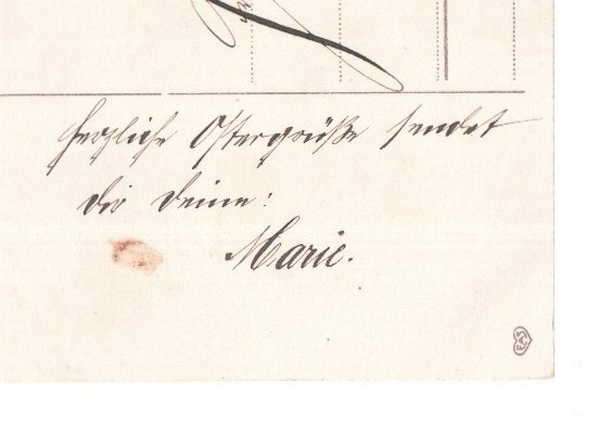 Herzliche Ostergrüße sendet
dir deine:
Marie.
EAS